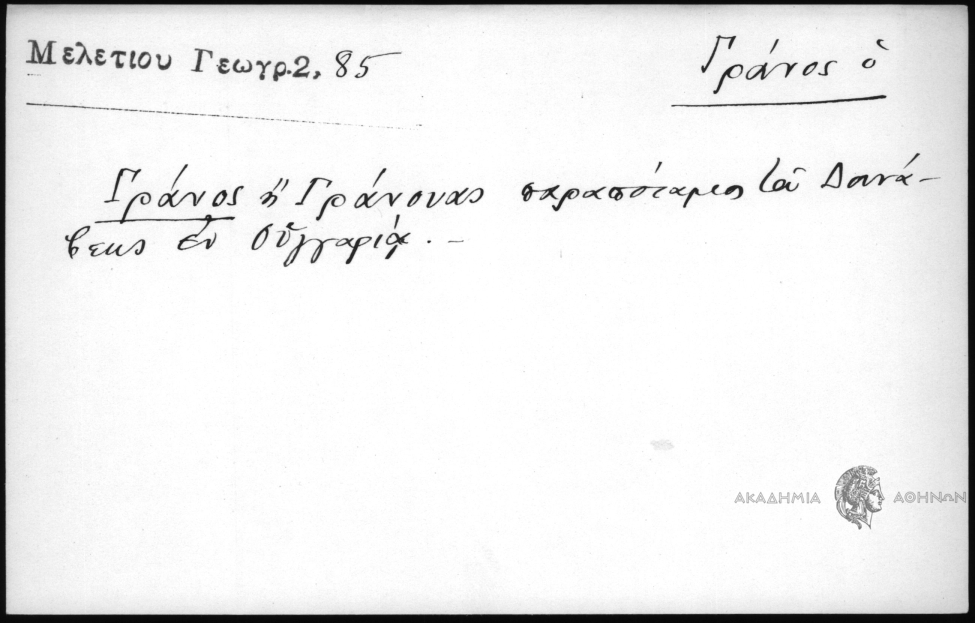 Μελετιου Γεωγρ.2, 85
Γράνος ὁ
Γράνος ἢ Γράνουας παραπόταμος τοῦ Δουνά-
βεως ἐν Οὑγγαρίᾳ. –
ΑΚΑΔΗΜΙΑ ΑΘΗΝΩΝ